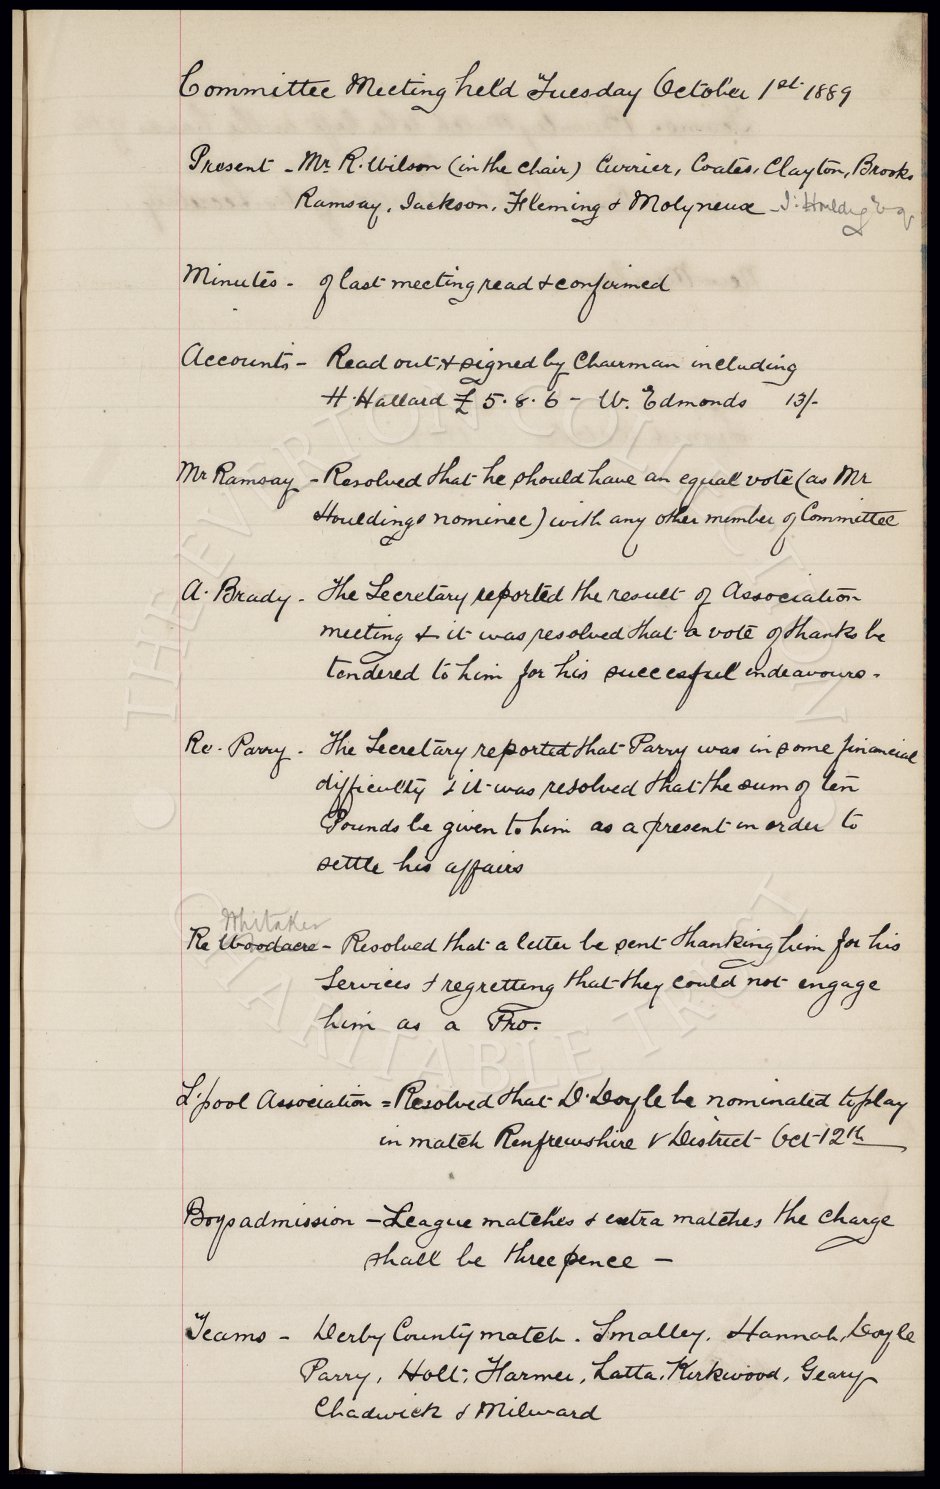 Committee Meeting held Tuesday October 1st 1889
Present - Mr. R. Wilson (in the chair) Currier, Coates, Clayton, Brooks
Ramsay, Jackson, Fleming & Molyneux - J. Houldg Esq
Minutes - of last meeting read & confirmed
Accounts - Read out & signed by Chairman including
H. Hallard £5.8.6 - W. Edmonds 13/-
Mr Ramsay - Resolved that he should have an equal vote (as Mr
Houldings nominee) with any other member of Committee
A. Brady - The Secretary reported the result of Association
meeting & it was resolved that a vote of thanks be
tendered to him for his succesful endeavours.
Re. Parry - The Secretary reported that Parry was in some financial
difficulty & it was resolved that the sum of ten
Pounds be given to him as a present in order to
settle his affairs
Whitaker
Re Woodacre - Resolved that a letter be sent thanking him for his
Services & regretting that they could not engage
him as a Pro.
L'pool Association = Resolved that D. Doyle be nominated to play
in match Renfrewshire v District Oct 12th
Boys admission - League matches & extra matches the charge
shall be threepence -
Teams - Derby County match. Smalley, Hannah, Doyle
Parry, Holt, Farmer, Latta, Kirkwood, Geary
Chadwick & Milward
© THE EVERTON COLLECTION
CHARITABLE TRUST